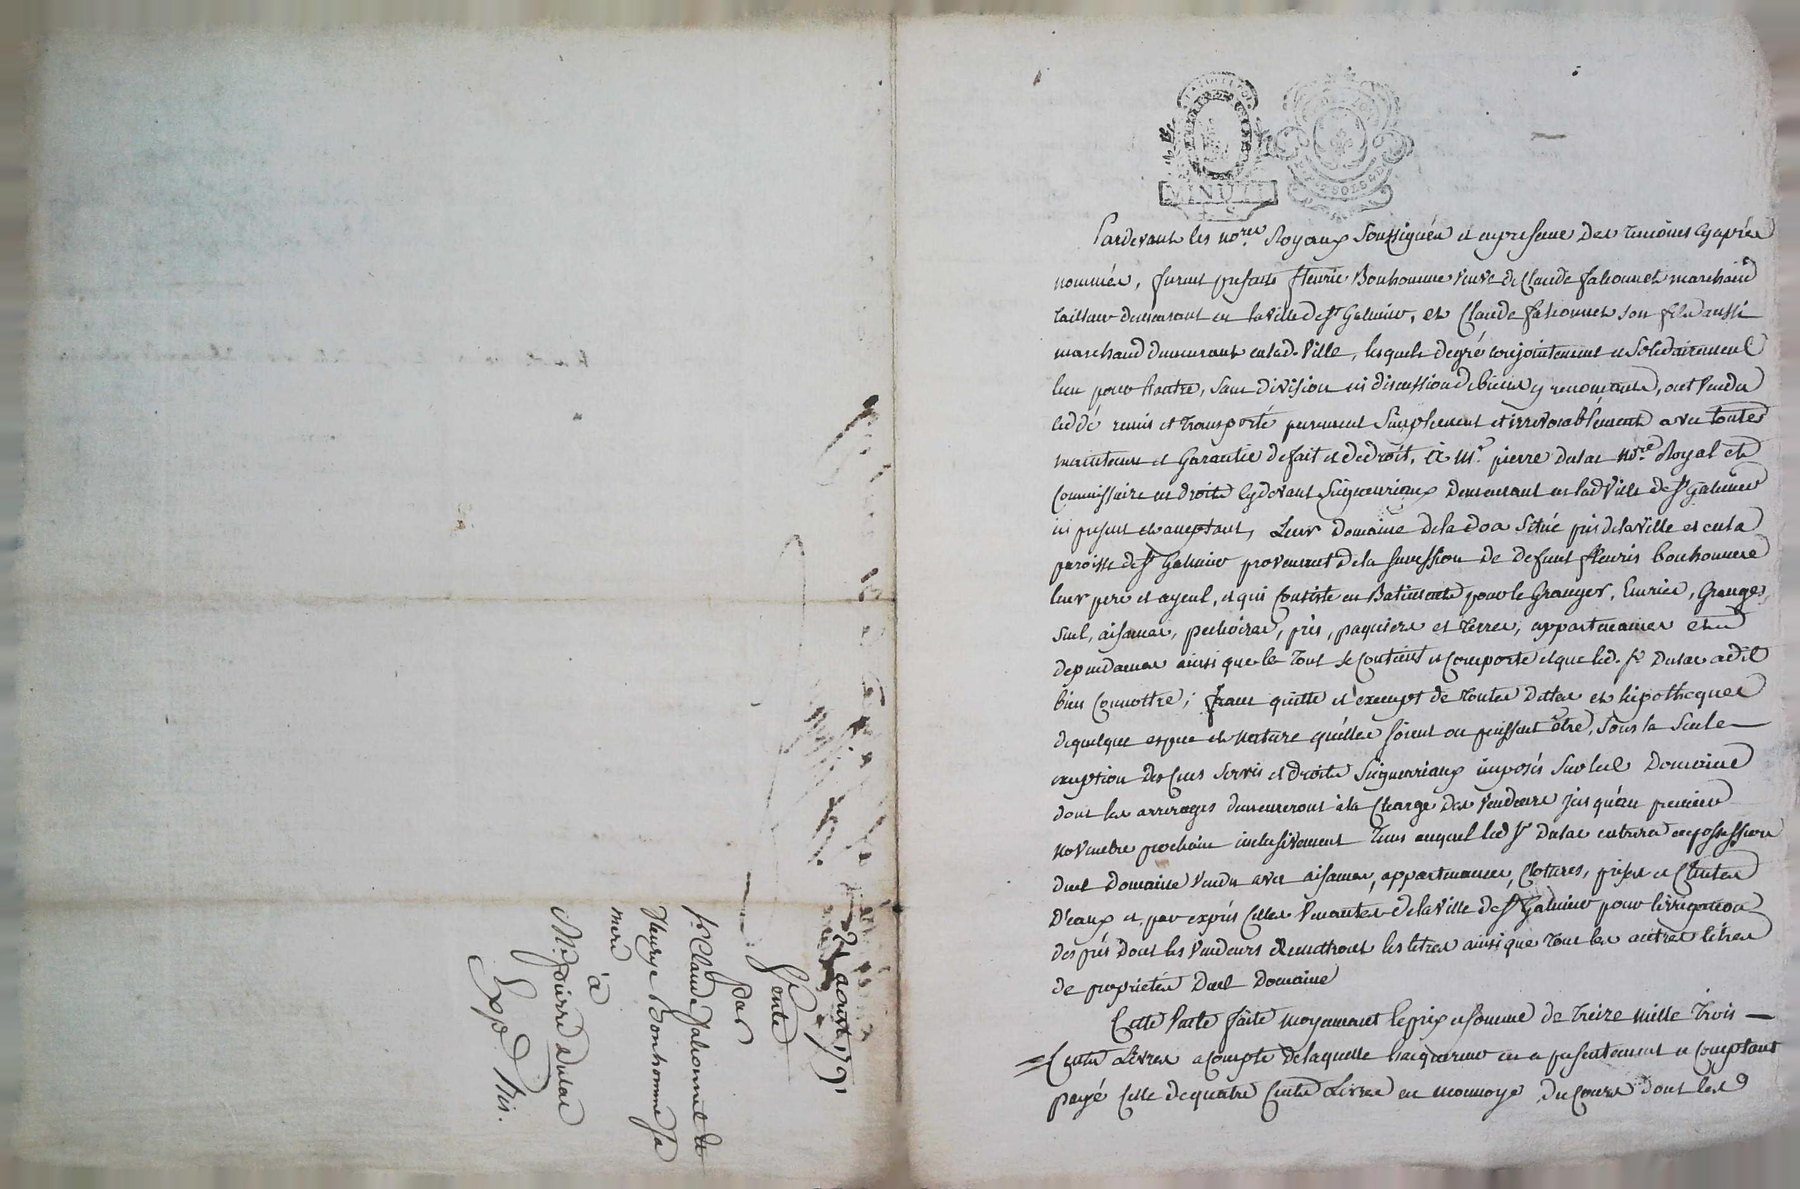 21 aoust 1791
Vente
par
Sr. Claude Falionnet &
Fleurye Bonhomme sa
mere
à
Me. pierre Dulac
Exp. Bis.
MINUTE
Pardevant les nores. Royaux soussignés et en presence des temoins cy après
nommés, furent presents fleurie Bonhomme veuve de Claude falionnet marchand
tailleur demeurant en la ville de St Galmier, et Claude falionnet son fils aussi
marchand demeurant en lad. ville, lesquels de gré conjointement et solidairement
l'un pour l'autre, sans division ni discussion de biens y renonçants, ont vendu
cédé remis et transporté purement simplement et irrevocablement avec toutes
maintenue et Garantie de fait et de droit, à Me. pierre dulac nore. Royal et
Commissaire en droits cy devant seigneuriaux demeurant en lad ville de St Galmier
ici present et acceptant, Leur domaine de la doa situé près de la ville et en la
paroisse de St Galmier provenant de la succession de defunt fleuris bonhomme
leur pere et ayeul, et qui consiste en Batiments pour le Granger, Ecuries, Granges,
suel, aisances, pechoires, prés, paquiers et terres, appartenances et
dependances ainsi que le tout se contient et comporte et que led. sr dulac a dit
bien connoitre; franc quitte et exempt de toutes dettes et hipotheques
de quelque espece et nature qu'elles soient ou puissent être, sous la seule
exception des cens servis et droits seigneuriaux imposés sur led Domaine
dont les arrerages demeureront à la charge des vendeurs jusqu'au premier
novembre prochain inclusivement tems auquel led Sr dulac entrera en possession
dud domaine vendu avec aisances, appartenances, clotures, prises et chutes
D'eaux et par exprés celles venantes de la ville de St Galmier pour l'irrigation
des prés dont les vendeurs remettront les titres ainsi que tous les autres titres
de proprietés dud Domaine
Cette vente faite moyennant le prix et somme de treize mille trois
Cents Livres a compte de laquelle l'acquereur en a presentement et comptant
payé celle de quatre Cents Livres en monnoye du cours dont les d